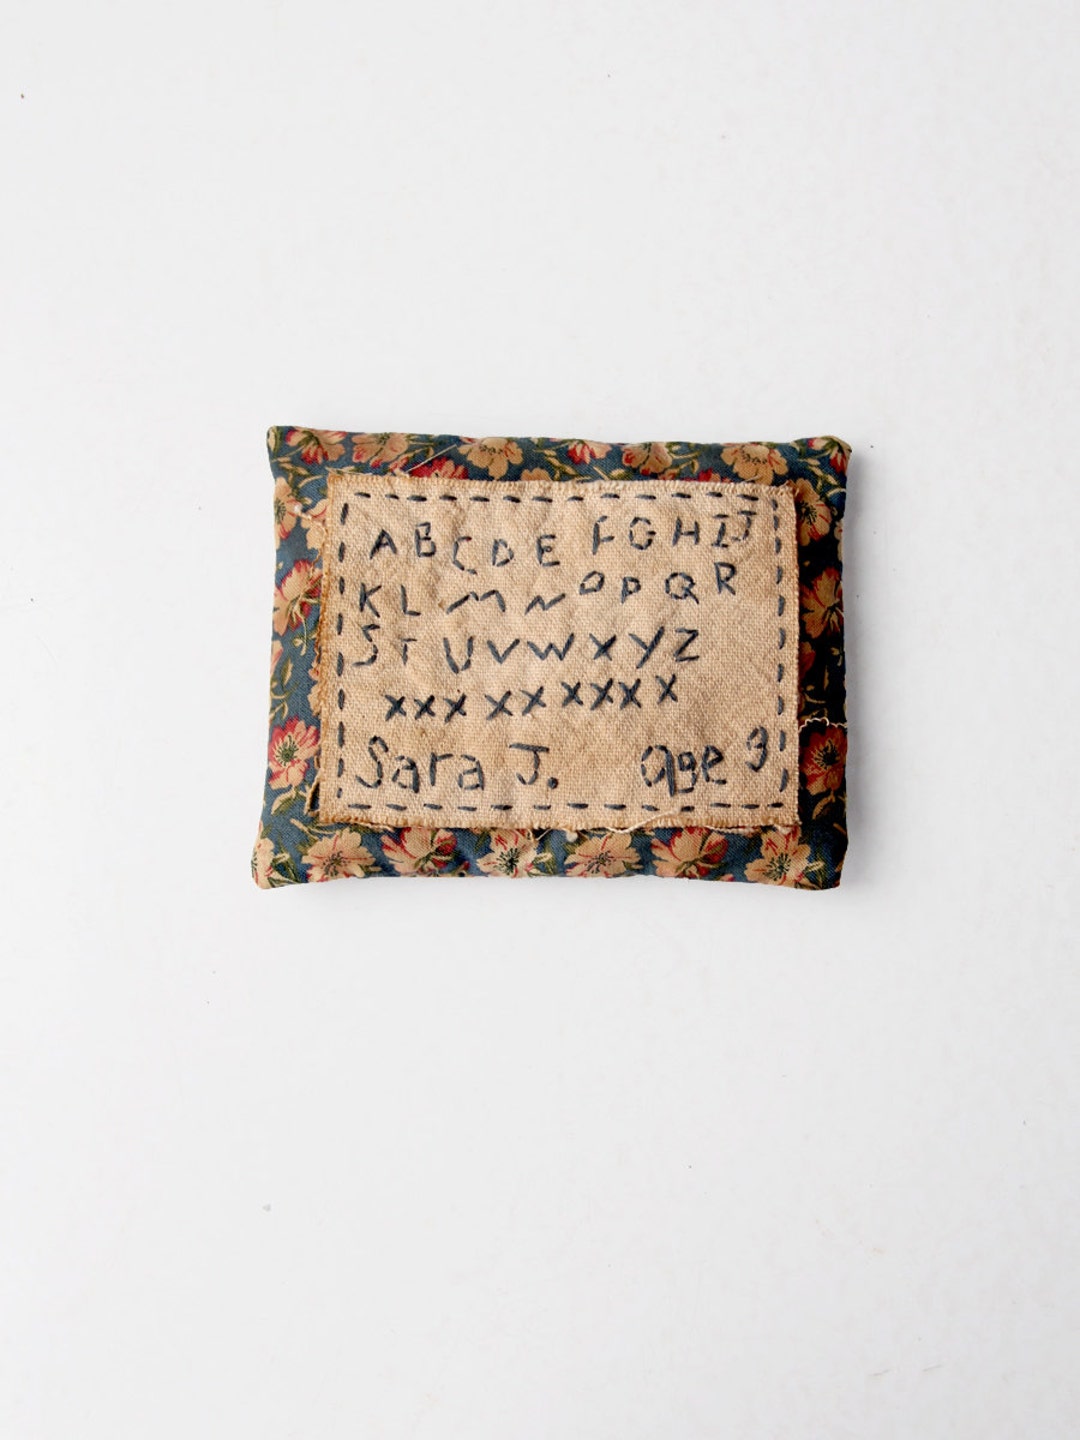 A B C D E F G H I J
K L M N O P Q R
S T U V W X Y Z
x x x x x x x x x
Sara J. age 9